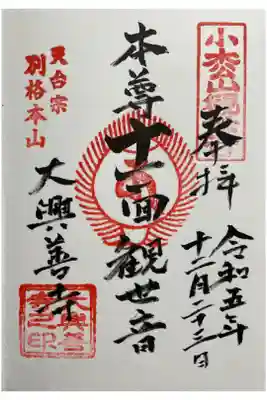 奉拝
令和五年
十二月二十三日
本尊十一面觀世音
天台宗
別格本山
大興善寺